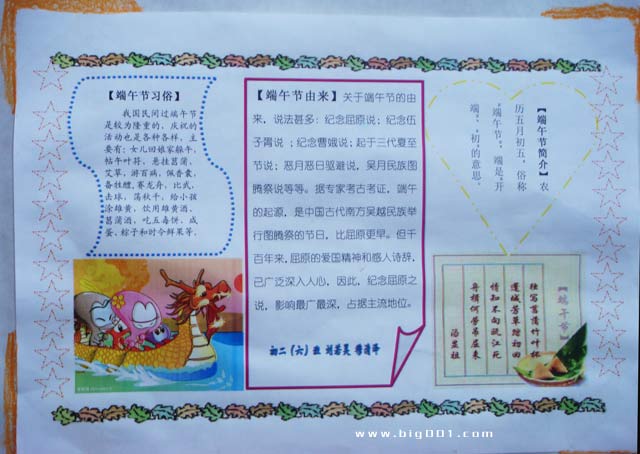 【端午节习俗】
我国民间过端午节
是较为隆重的，庆祝的
活动也是各种各样，主
要有：女儿回娘家躲午，
帖午叶符，悬挂菖蒲、
艾草，游百病，佩香囊，
备牲醴，赛龙舟，比武，
击球，荡秋千，给小孩
涂雄黄，饮用雄黄酒、
菖蒲酒，吃五毒饼、咸
蛋、粽子和时令鲜果等。
【端午节由来】关于端午节的由
来，说法甚多：纪念屈原说；纪念伍
子胥说；纪念曹娥说；起于三代夏至
节说；恶月恶日驱避说，吴月民族图
腾祭说等等。据专家考古考证，端午
的起源，是中国古代南方吴越民族举
行图腾祭的节日，比屈原更早。但千
百年来，屈原的爱国精神和感人诗辞，
已广泛深入人心，因此，纪念屈原之
说，影响最广最深，占据主流地位。
初二（六）班 刘若昊
【端午节简介】农
历五月初五，俗称
“端午节”，端是“开
端”、“初”的意思。
【端午节】
独写菖蒲竹叶杯
蓬城芳草踏初回
情知不向瓯江死
舟楫何劳吊屈来
汤显祖
www.big001.com